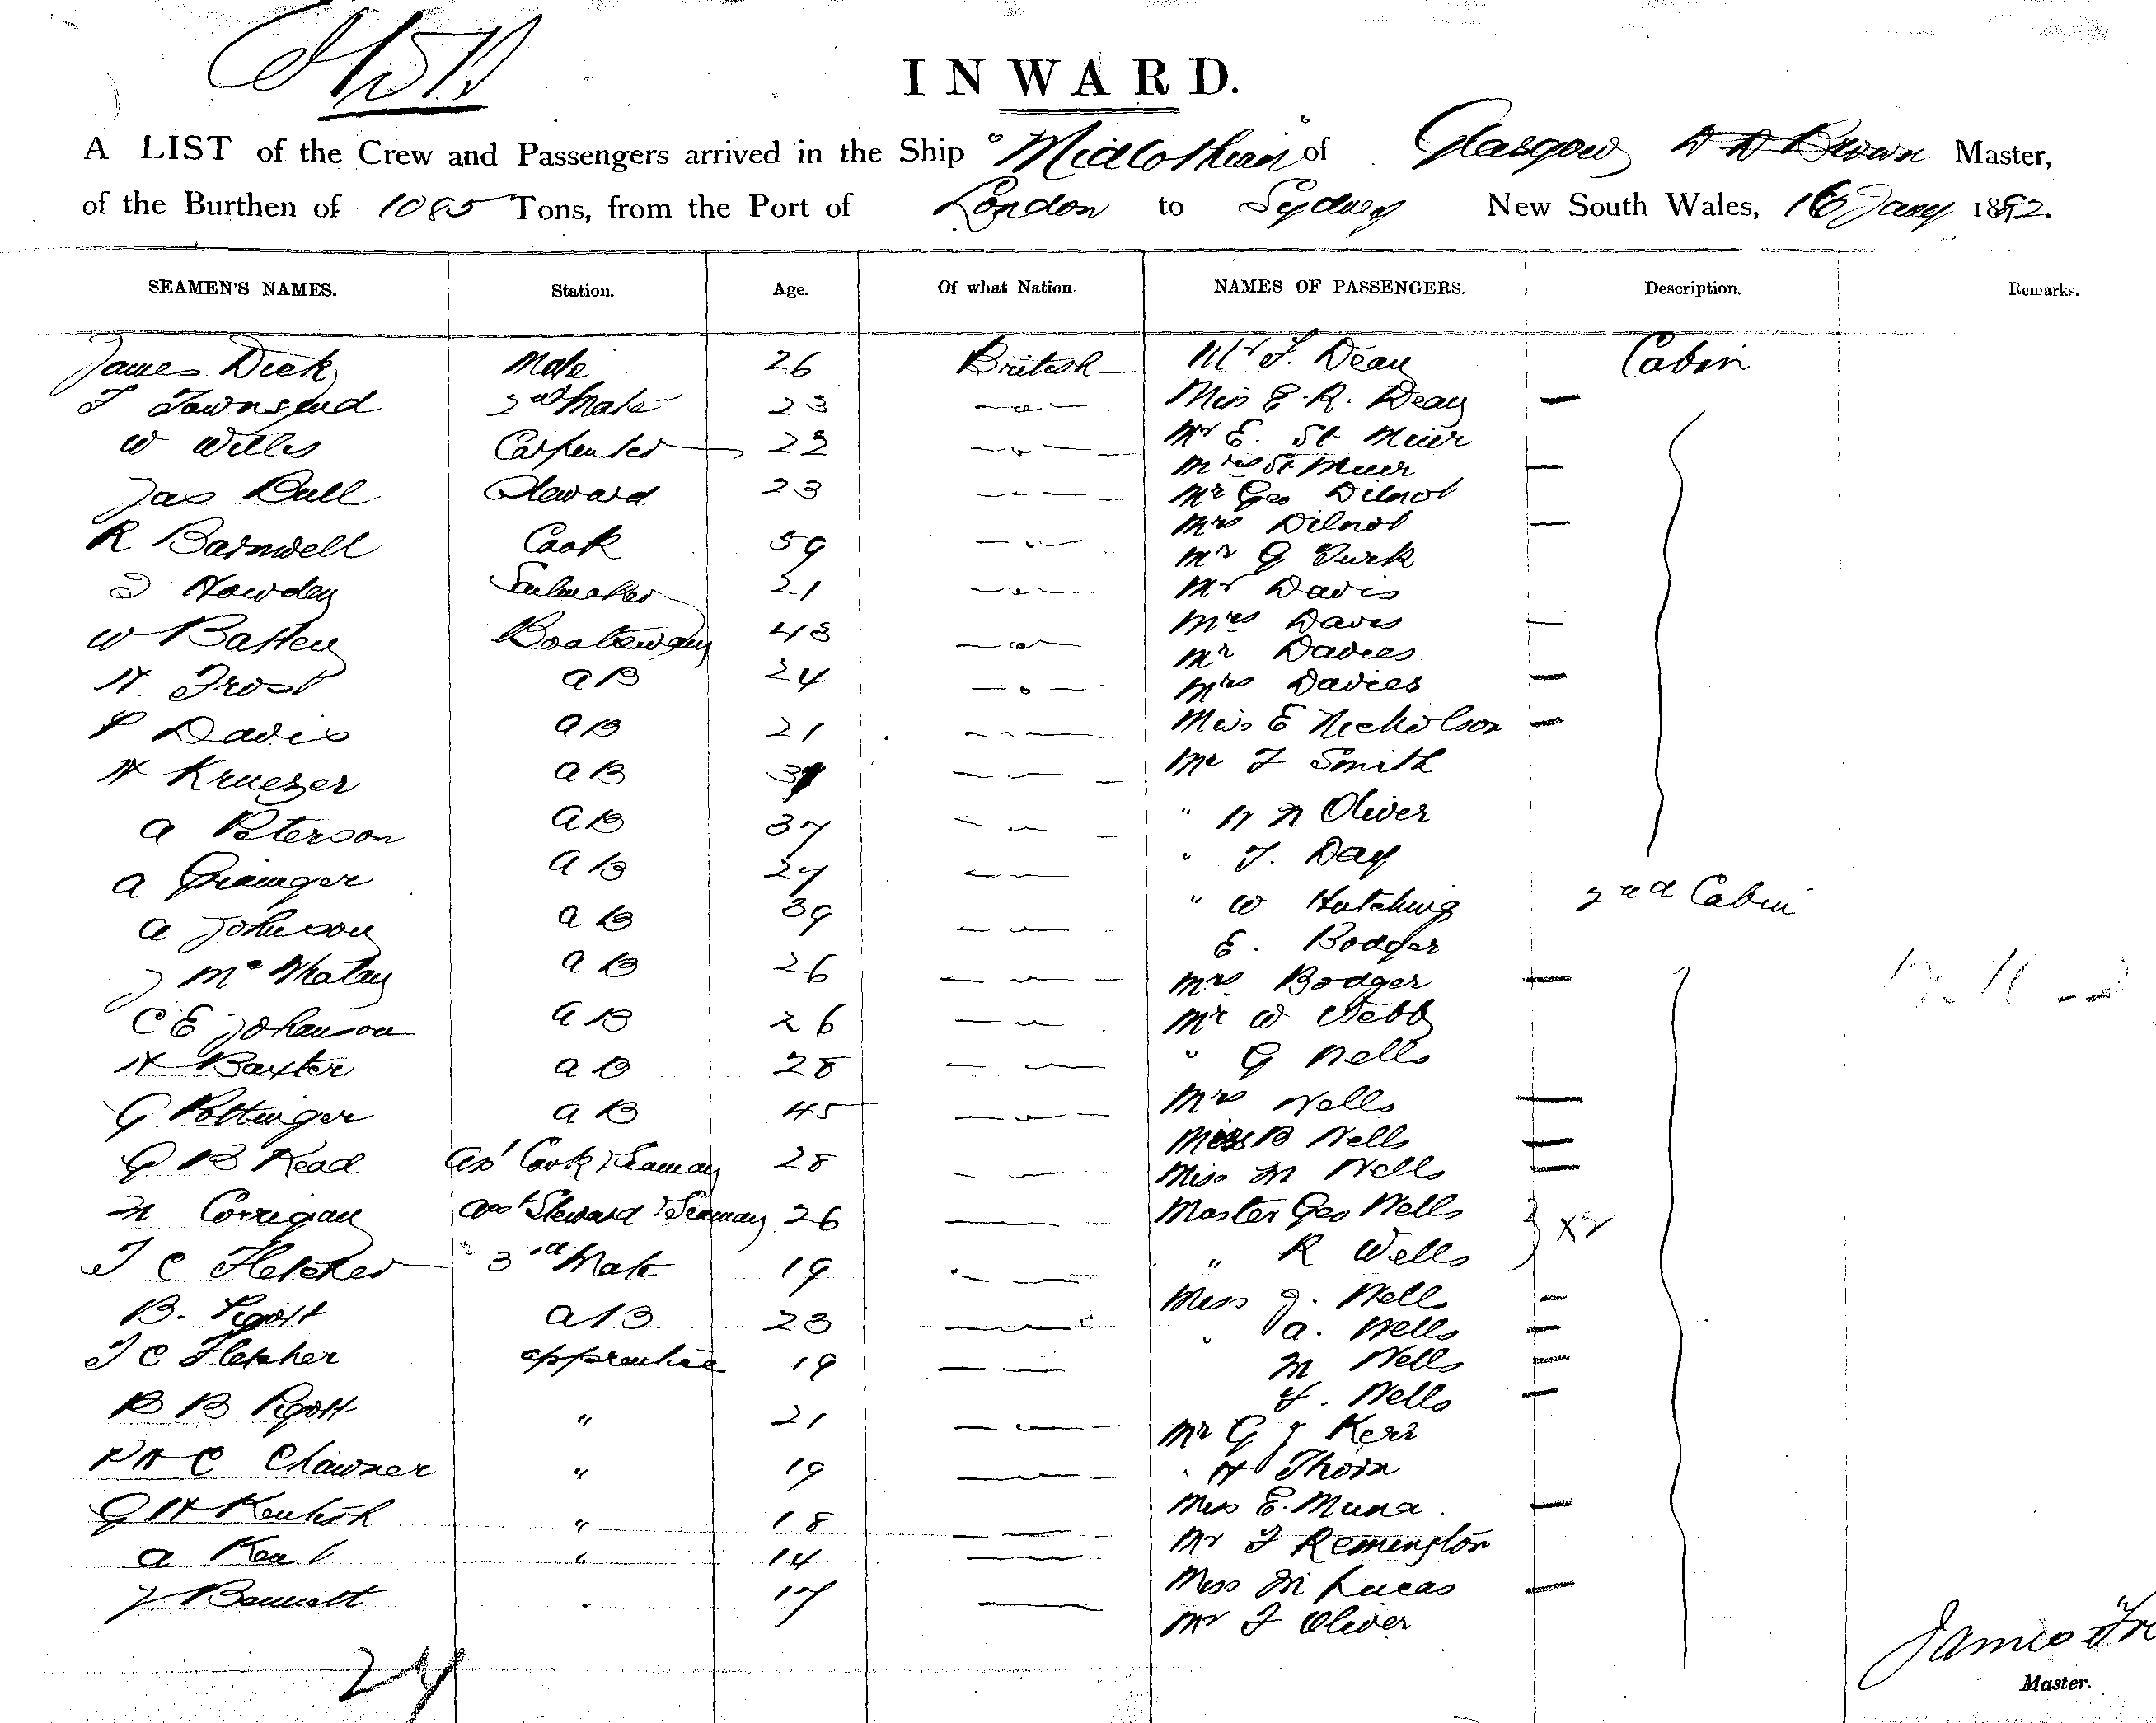 INWARD.
A LIST of the Crew and Passengers arrived in the Ship "Midlothian" of Glasgow D D Brown Master,
of the Burthen of 1085 Tons, from the Port of London to Sydney New South Wales, 16 Jany 1892.
SEAMEN'S NAMES. Station. Age. Of what Nation. NAMES OF PASSENGERS. Description. Remarks.
James Dick Mate 26 British Mr F. Dean Cabin
T Townsend 2nd Mate 23 —o— Miss E. R. Dean —
W Willis Carpenter 22 —"— Mr E. St Muir
Mrs St Muir —
Jas Bull Steward 23 — " — Mr Geo Dilnot
Mrs Dilnot —
R Barnwell Cook 59 — " — Mr G Turk
Howden Sailmaker 21 — " — Mr Davis
W Batten Boatswain 43 —o— Mrs Davis —
Mr Davies
H. Frost AB 24 — o — Mrs Davies —
P Davis AB 21 — — Miss E Nicholson —
H Krueger AB — — Mr F Smith
A Peterson AB 37 — — " Oliver
A Grainger AB 27 — — " T. Day
A Johnson AB 39 — — " W Hutching 2nd Cabin
E. Bodger
J Mc AB 26 — — Mrs Bodger —
C E Johanson AB 26 — — Mr W Webb
H Baxter AB 28 — — " G Wells
G Pottinger AB 45 — — Mrs Wells —
Miss B Wells —
G B Read Ast Cook & Seaman 28 — — Miss M Wells —
Corrigan Asst Steward & Seaman 26 — Master Geo Wells
" R Wells
T C Fletcher 3rd Mate 19 — — Miss J. Wells —
B. Pigott AB 23 — — " A. Wells —
T C Fletcher Apprentice 19 — — M Wells —
F. Wells —
B B Pigott " 21 — — Mr G J Kerr
C Chawner " 19 — — " H Thorn
G H Kentish " 18 — — Miss E. Muna —
A Kent " 14 — — Mr F Remington
Miss M Lucas —
J Bennett " 17 — Mr F Oliver
24
James
Master.